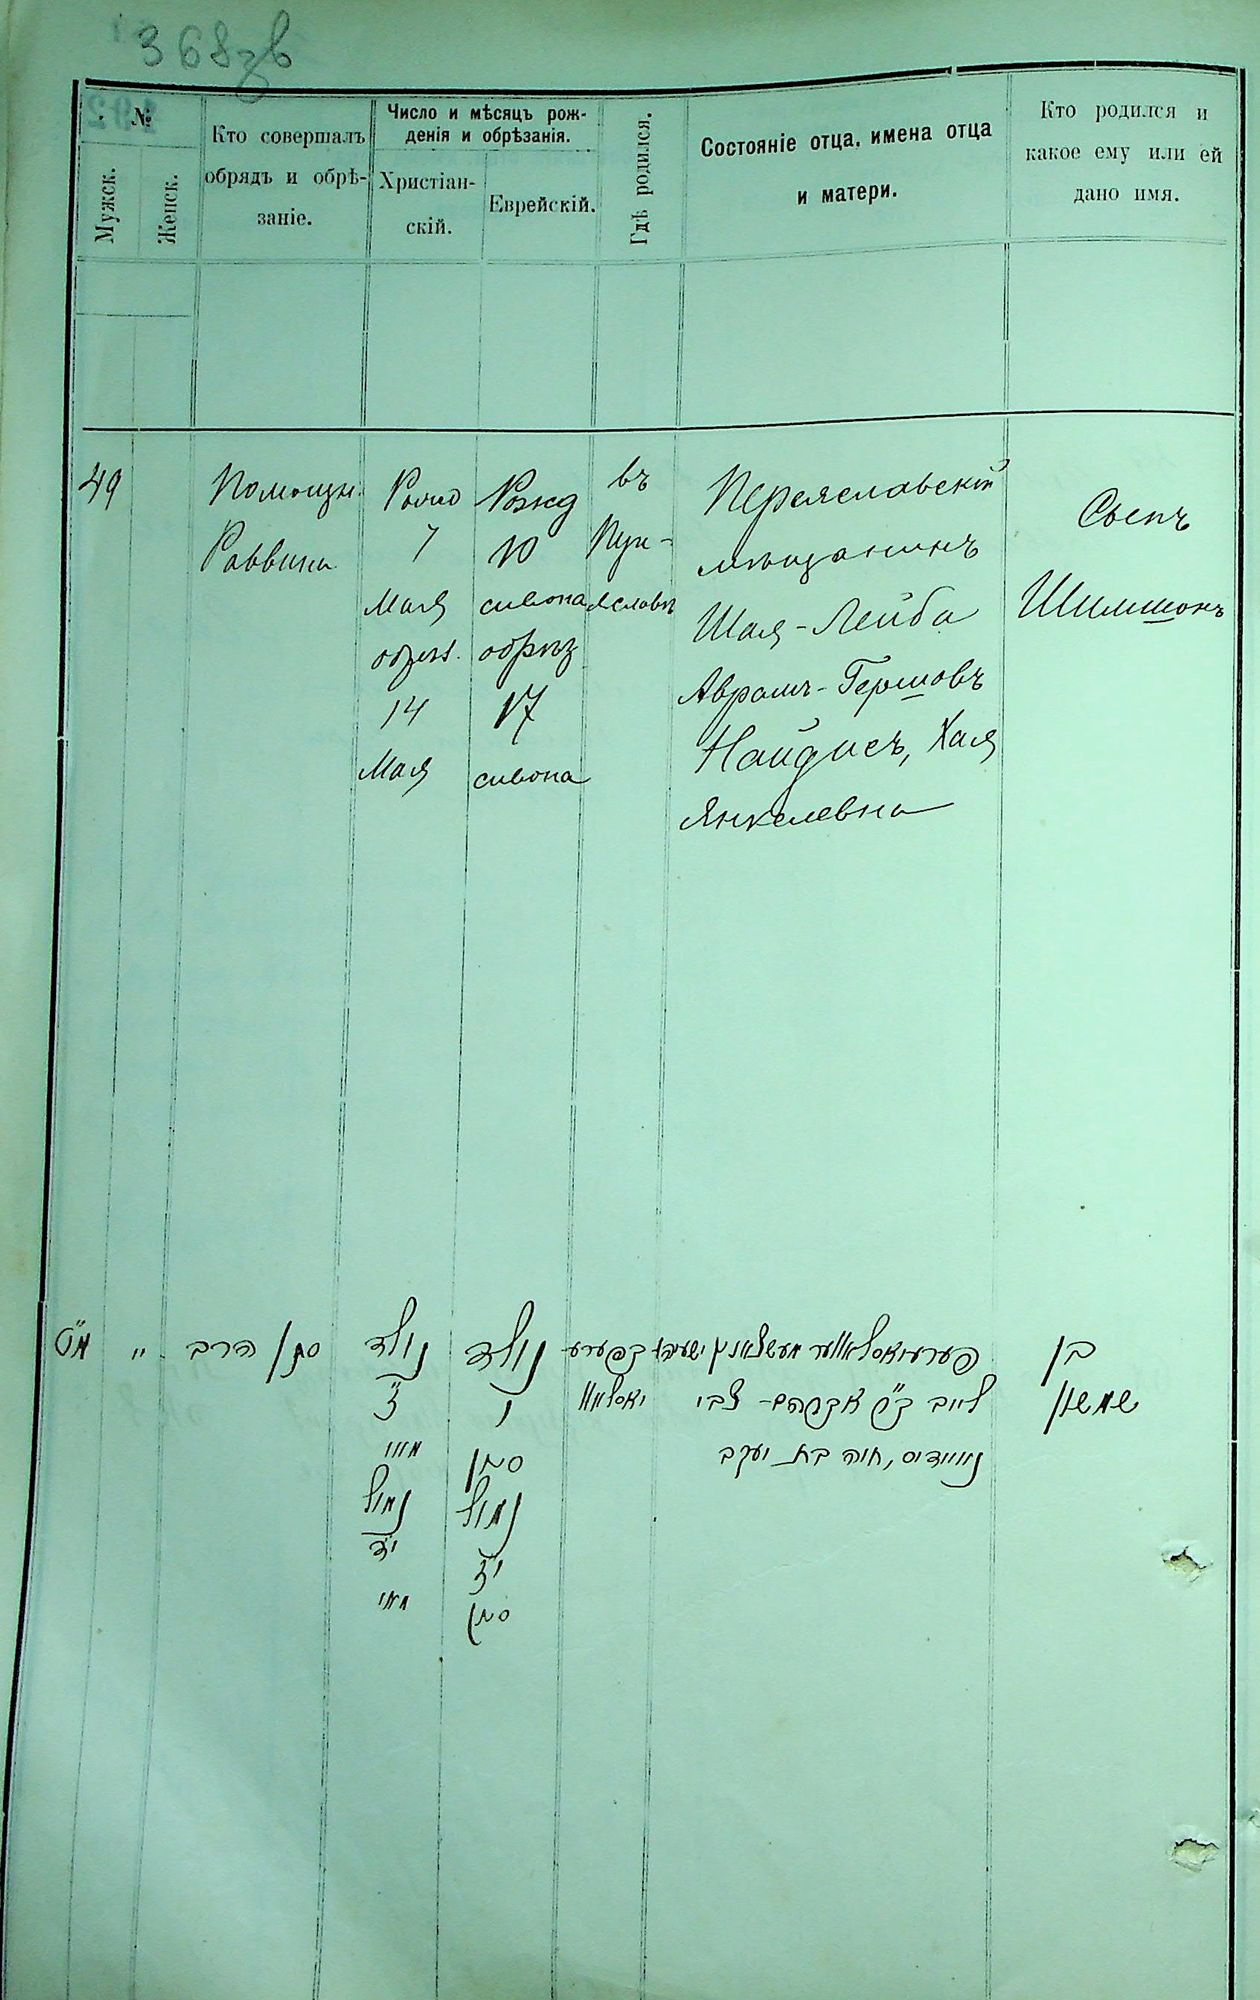 368зв
№
Мужск.
Женск.
Кто совершалъ
обрядъ и обрѣ-
заніе.
Число и мѣсяцъ рож-
денія и обрѣзанія.
Христіан-
скій.
Еврейскій.
Гдѣ родился.
Состояніе отца, имена отца
и матери.
Кто родился и
какое ему или ей
дано имя.
49
Помощн.
Раввина
7
Мая
обрез.
14
Мая
Рожд
10
сивона
обрѣз
17
сивона
въ
Пере-
яславѣ
Переяславскій
мѣщанинъ
Шая-Лейба
Аврамъ-Гершовъ
Найдисъ, Хая
Янкелевна
Сынъ
Шимшонъ
מ"ט
"
סגן הרב
נולד
ז
מאי
נמול
י"ד
מאי
נולד
י
סיון
נמול
י"ז
סיון
בפערע
יאסלאוו
פערעיאסלאווער מעשצאנין ישעיה
לייב ב"ר אברהם-צבי
נויידיס, חיה בת יעקב
בן
שמשון